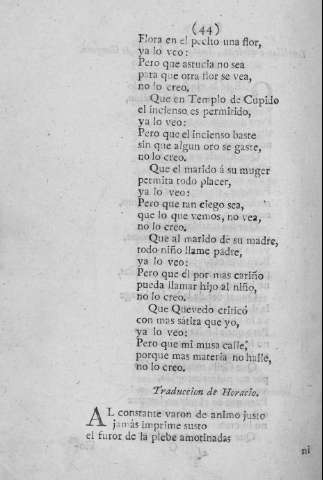 (44)
Flora en el pecho una flor,
ya lo veo:
Pero que astucia no sea
para que otra flor se vea,
no lo creo.
Que en Templo de Cupido
el incienso es permitido,
ya lo veo:
Pero que el incienso baste
sin que algun oro se gaste,
no lo creo.
Que el marido á su muger
permita todo placer,
ya lo veo:
Pero que tan ciego sea,
que lo que vemos, no vea,
no lo creo.
Que al marido de su madre,
todo niño llame padre,
ya lo veo:
Pero que él por mas cariño
pueda llamar hijo al niño,
no lo creo.
Que Quevedo criticó
con mas sátira que yo,
ya lo veo:
Pero que mi musa calle,
porque mas materia no halle,
no lo creo.
Traduccion de Horacio.
AL constante varon de animo justo
jamás imprime susto
el furor de la plebe amotinada
ni